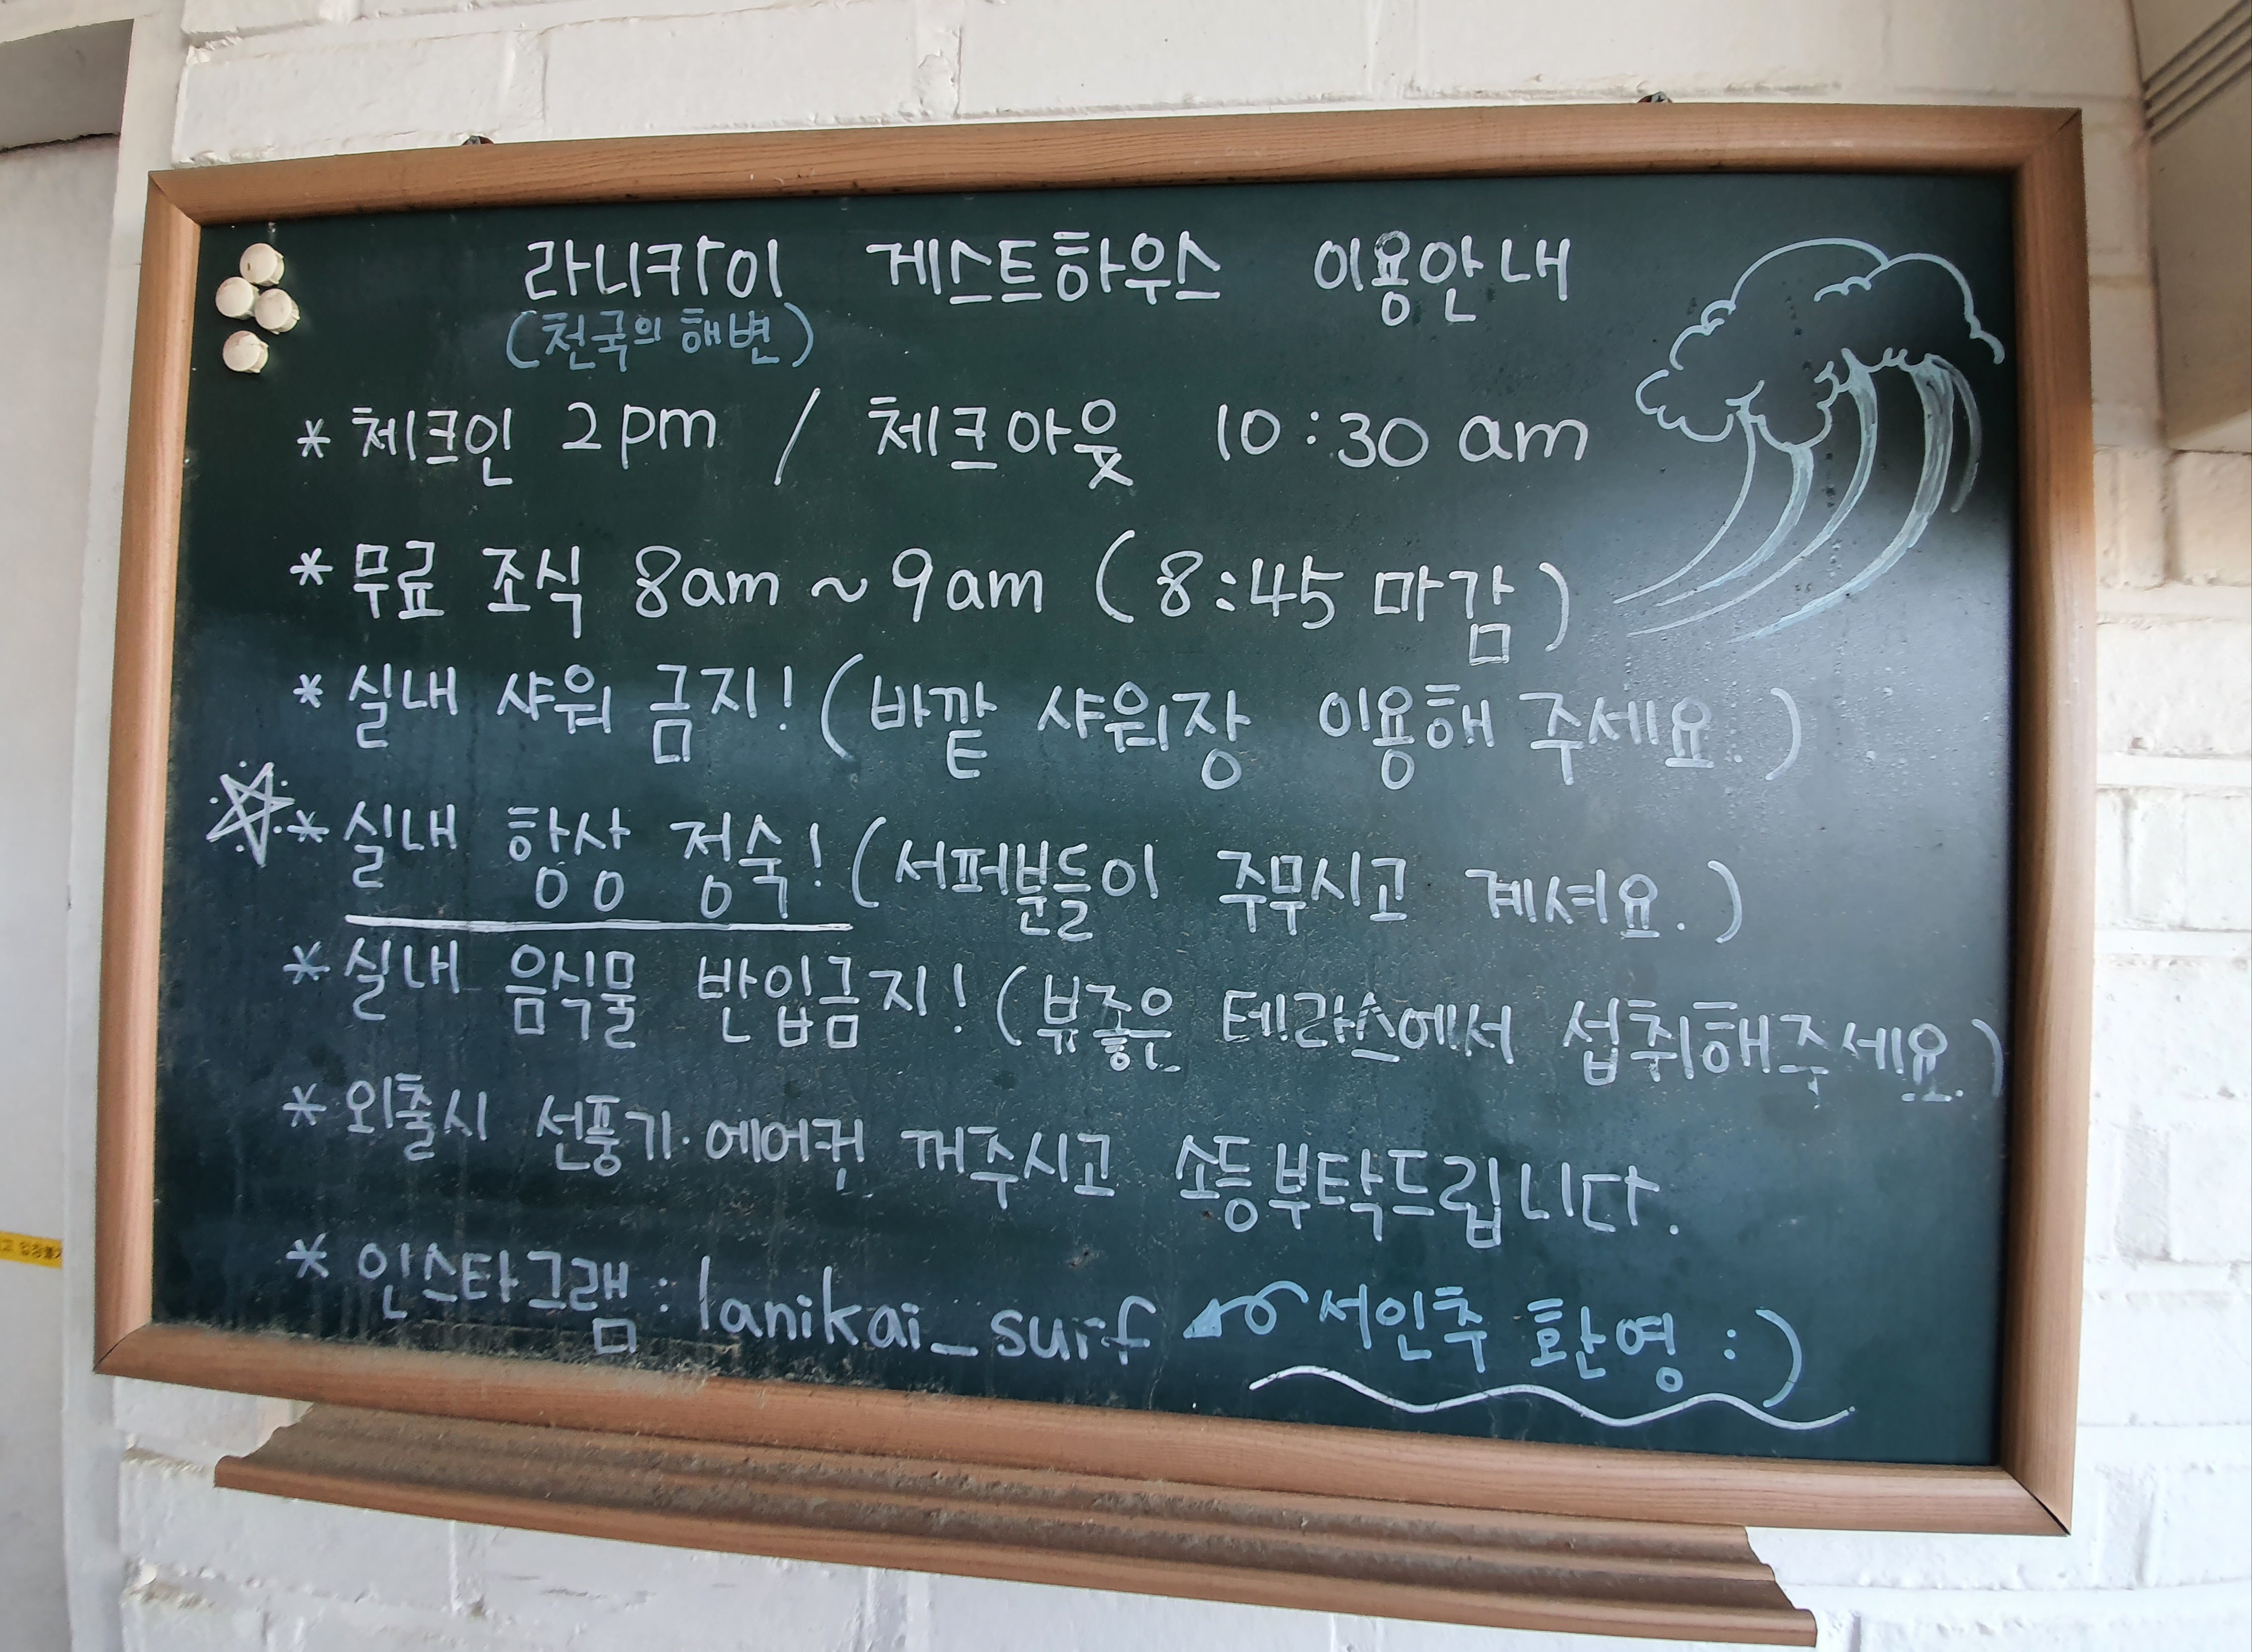 라니카이 게스트하우스 이용안내
(천국의 해변)
* 체크인 2pm / 체크아웃 10:30 am
* 무료 조식 8am ~ 9am (8:45 마감)
* 실내 샤워 금지! (바깥 샤워장 이용해 주세요.)
* 실내 항상 정숙! (서퍼분들이 주무시고 계셔요.)
* 실내 음식물 반입금지! (뷰좋은 테라스에서 섭취해주세요.)
* 외출시 선풍기·에어컨 꺼주시고 소등부탁드립니다.
* 인스타그램 : lanikai_surf 서인추 환영 :)